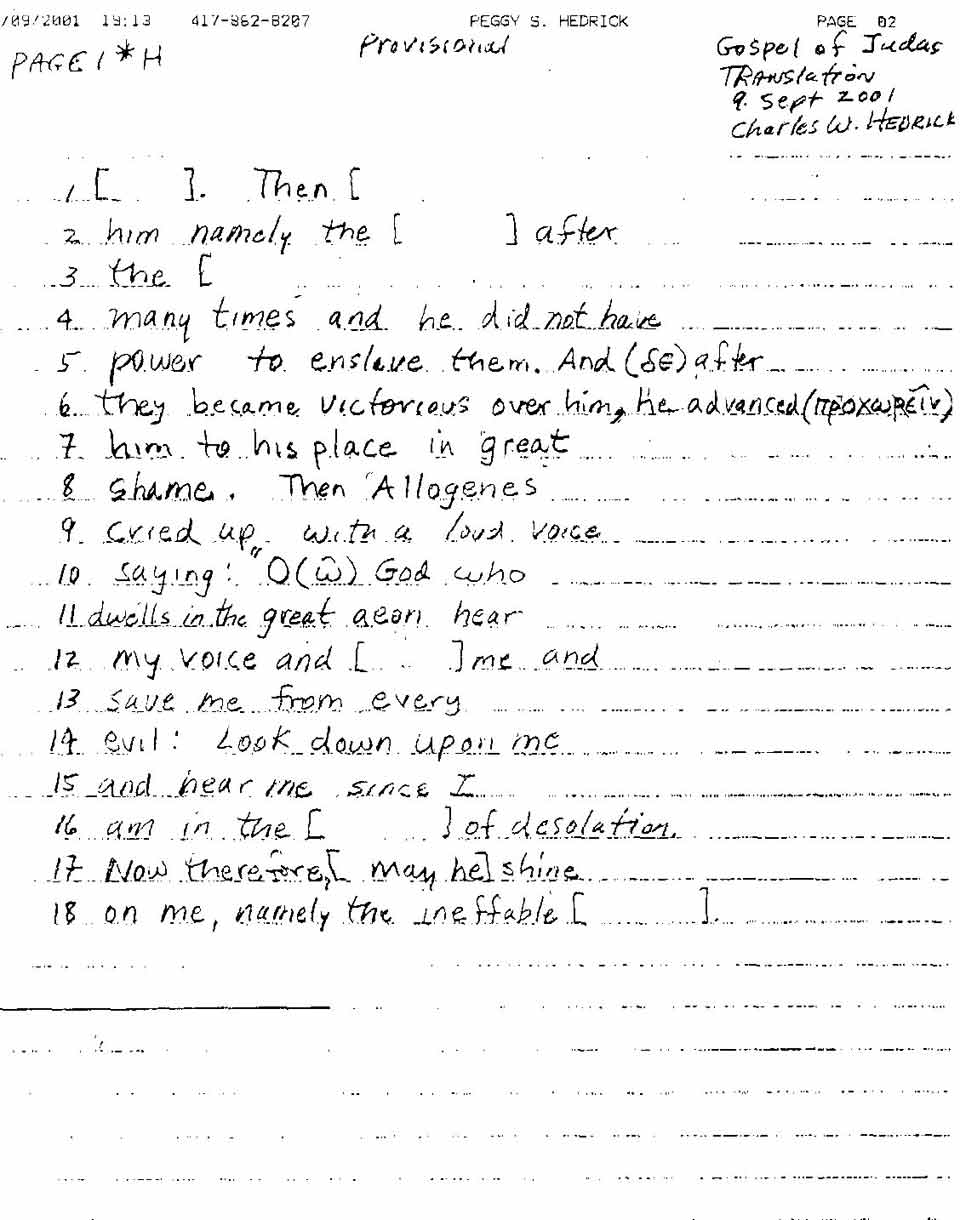 /09/2001 19:13 417-862-8207 PEGGY S. HEDRICK PAGE 02
PAGE 1 * H
Provisional
Gospel of Judas
TRANslation
9. Sept 2001
Charles W. HEDRICK
1 [ ]. Then [
2 him namely the [ ] after
3 the [
4 many times and he did not have
5 power to enslave them. And (δε) after
6 they became victorious over him, he advanced (προχωρεῖν)
7 him to his place in great
8 shame. Then Allogenes
9 cried up with a loud voice
10 saying: "O (ω̂) God who
11 dwells in the great aeon hear
12 my voice and [ ] me and
13 save me from every
14 evil: Look down upon me
15 and hear me since I
16 am in the [ ] of desolation.
17 Now therefore, [ may he] shine
18 on me, namely the ineffable [ ].